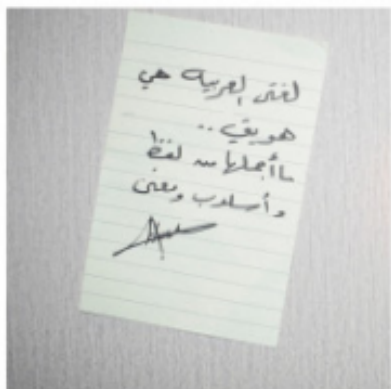 لغتي العربية هي
هويتي ..
ما أجملها من لفظ
وأسلوب ومعنى